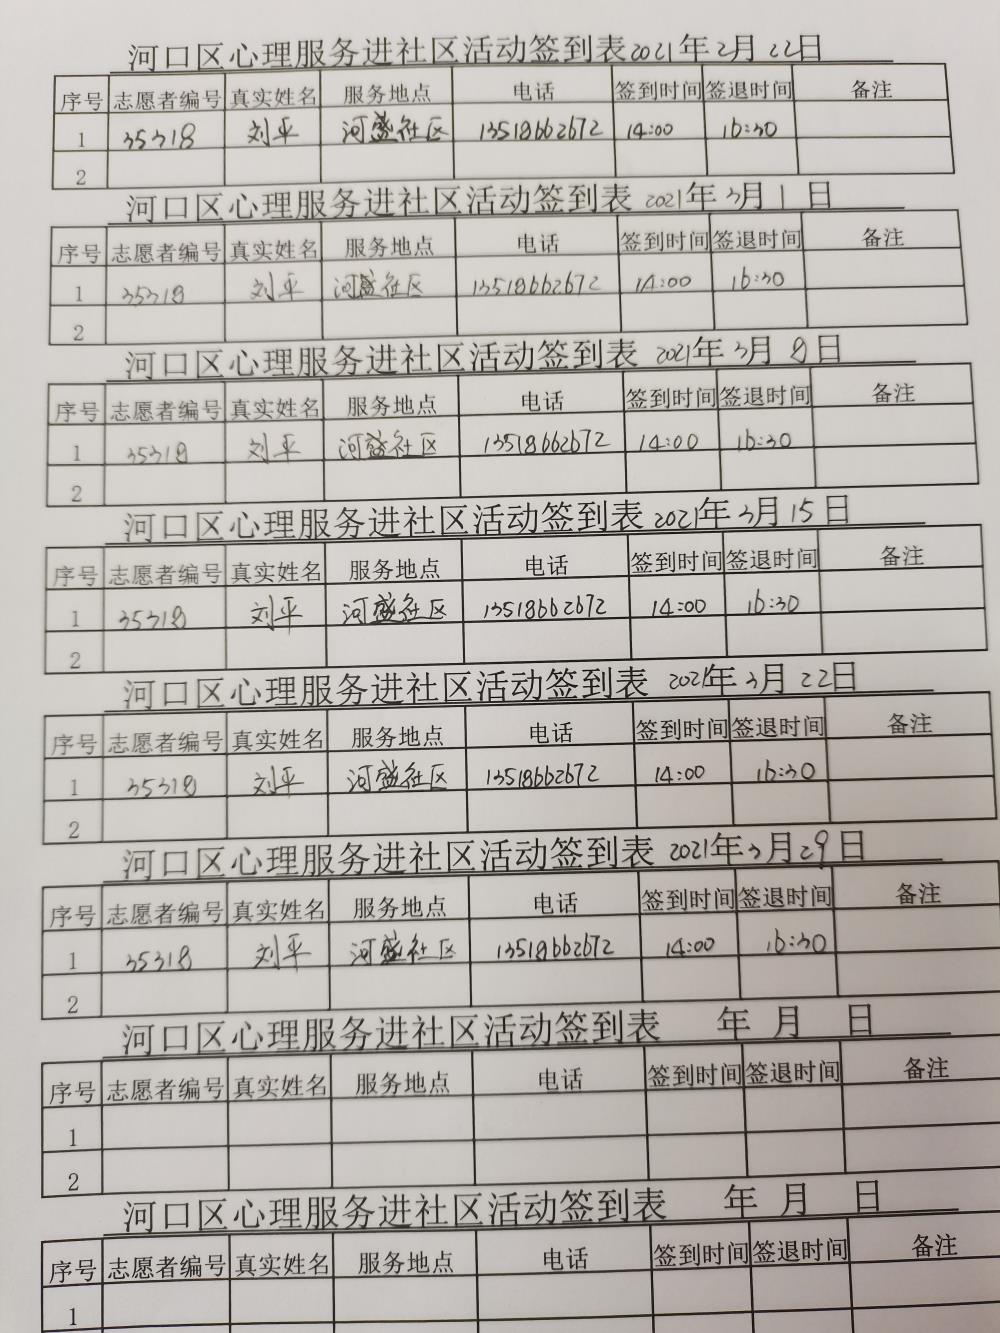 河口区心理服务进社区活动签到表2021年2月22日
序号 志愿者编号 真实姓名 服务地点 电话 签到时间 签退时间 备注
1 35318 刘平 河盛社区 13518662672 14:00 16:30
2
河口区心理服务进社区活动签到表 2021年3月1日
序号 志愿者编号 真实姓名 服务地点 电话 签到时间 签退时间 备注
1 35318 刘平 河盛社区 13518662672 14:00 16:30
2
河口区心理服务进社区活动签到表 2021年3月8日
序号 志愿者编号 真实姓名 服务地点 电话 签到时间 签退时间 备注
1 35318 刘平 河盛社区 13518662672 14:00 16:30
2
河口区心理服务进社区活动签到表 2021年3月15日
序号 志愿者编号 真实姓名 服务地点 电话 签到时间 签退时间 备注
1 35318 刘平 河盛社区 13518662672 14:00 16:30
2
河口区心理服务进社区活动签到表 2021年3月22日
序号 志愿者编号 真实姓名 服务地点 电话 签到时间 签退时间 备注
1 35318 刘平 河盛社区 13518662672 14:00 16:30
2
河口区心理服务进社区活动签到表 2021年3月29日
序号 志愿者编号 真实姓名 服务地点 电话 签到时间 签退时间 备注
1 35318 刘平 河盛社区 13518662672 14:00 16:30
2
河口区心理服务进社区活动签到表 年 月 日
序号 志愿者编号 真实姓名 服务地点 电话 签到时间 签退时间 备注
1
2
河口区心理服务进社区活动签到表 年 月 日
序号 志愿者编号 真实姓名 服务地点 电话 签到时间 签退时间 备注
1